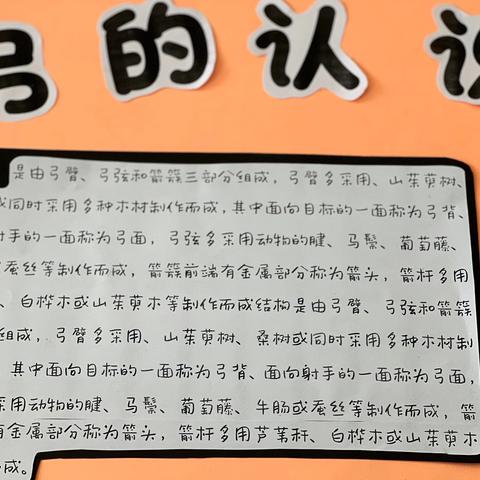 弓的认识
是由弓臂、弓弦和箭簇三部分组成，弓臂多采用、山茱萸树、
或同时采用多种木材制作而成，其中面向目标的一面称为弓背、
射手的一面称为弓面，弓弦多采用动物的腱、马鬃、葡萄藤、
蚕丝等制作而成，箭簇前端有金属部分称为箭头，箭杆多用
、白桦木或山茱萸木等制作而成结构是由弓臂、弓弦和箭簇
组成，弓臂多采用、山茱萸树、桑树或同时采用多种木材制
其中面向目标的一面称为弓背、面向射手的一面称为弓面，
采用动物的腱、马鬃、葡萄藤、牛肠或蚕丝等制作而成，箭
有金属部分称为箭头，箭杆多用芦苇秆、白桦木或山茱萸木
而成。